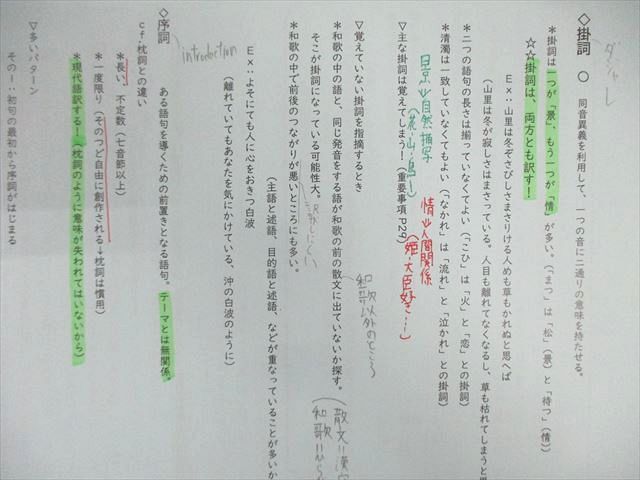 ダジャレ
◇掛詞 ○ 同音異義を利用して、一つの音に二通りの意味を持たせる。
＊掛詞は一つが「景」、もう一つが「情」が多い。（「まつ」は「松」（景）と「待つ」（情）
☆☆掛詞は、両方とも訳す！
Ｅｘ：山里は冬ぞさびしさまさりける人めも草もかれぬと思へば
（山里は冬が寂しさはまさっている。人目も離れてなくなるし、草も枯れてしまうと思
＊二つの語句の長さは揃っていなくてよい（「こひ」は「火」と「恋」との掛詞）
＊清濁は一致していなくてもよい（「なかれ」は「流れ」と「泣かれ」との掛詞）
景⇒自然描写
（花・山・鳥…）
情⇒人間関係
（姫・大臣好き…）
▽主な掛詞は覚えてしまう！（重要事項 P29）
▽覚えていない掛詞を指摘するとき
＊和歌の中の語と、同じ発音をする語が和歌の前の散文に出ていないか探す。
和歌以外のところ
（散文＝漢字
和歌＝ひらが
そこが掛詞になっている可能性大。
訳しにくい
＊和歌の中で前後のつながりが悪いところにも多い。
（主語と述語、目的語と述語、などが重なっていることが多いか
Ｅｘ：よそにても人に心をおきつ白波
（離れていてもあなたを気にかけている、沖の白波のように）
introduction
◇序詞 ある語句を導くための前置きとなる語句。テーマとは無関係。
cf.枕詞との違い
＊長い、不定数（七音節以上）
＊一度限り（そのつど自由に創作される→枕詞は慣用）
＊現代語訳する！（枕詞のように意味が失われてはいないから）
▽多いパターン
その１：初句の最初から序詞がはじまる